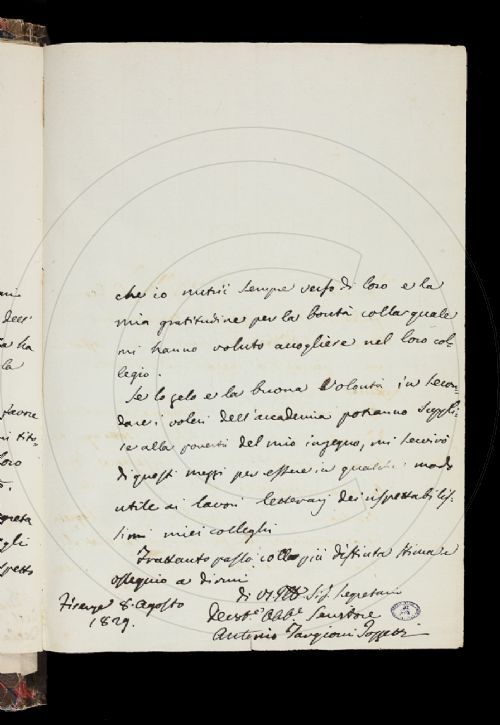 che io nutrii sempre verso di loro e la
mia gratitudine per la bontà colla quale
mi hanno voluto accogliere nel loro col-
legio.
Se lo zelo e la buona volontà in secon-
dare i voleri dell'accademia potranno suppli-
re alla povertà del mio ingegno, mi servirò
di questi mezzi per essere in qualche modo
utile ai lavori letterarj dei rispettabilis-
simi miei colleghi
Frattanto passo colla più distinta stima e
ossequio a dirmi
di Sig. Segretario
Firenze 8 Agosto
1829.
Devot.o Obb.o Servitore
Antonio Targioni Tozzetti